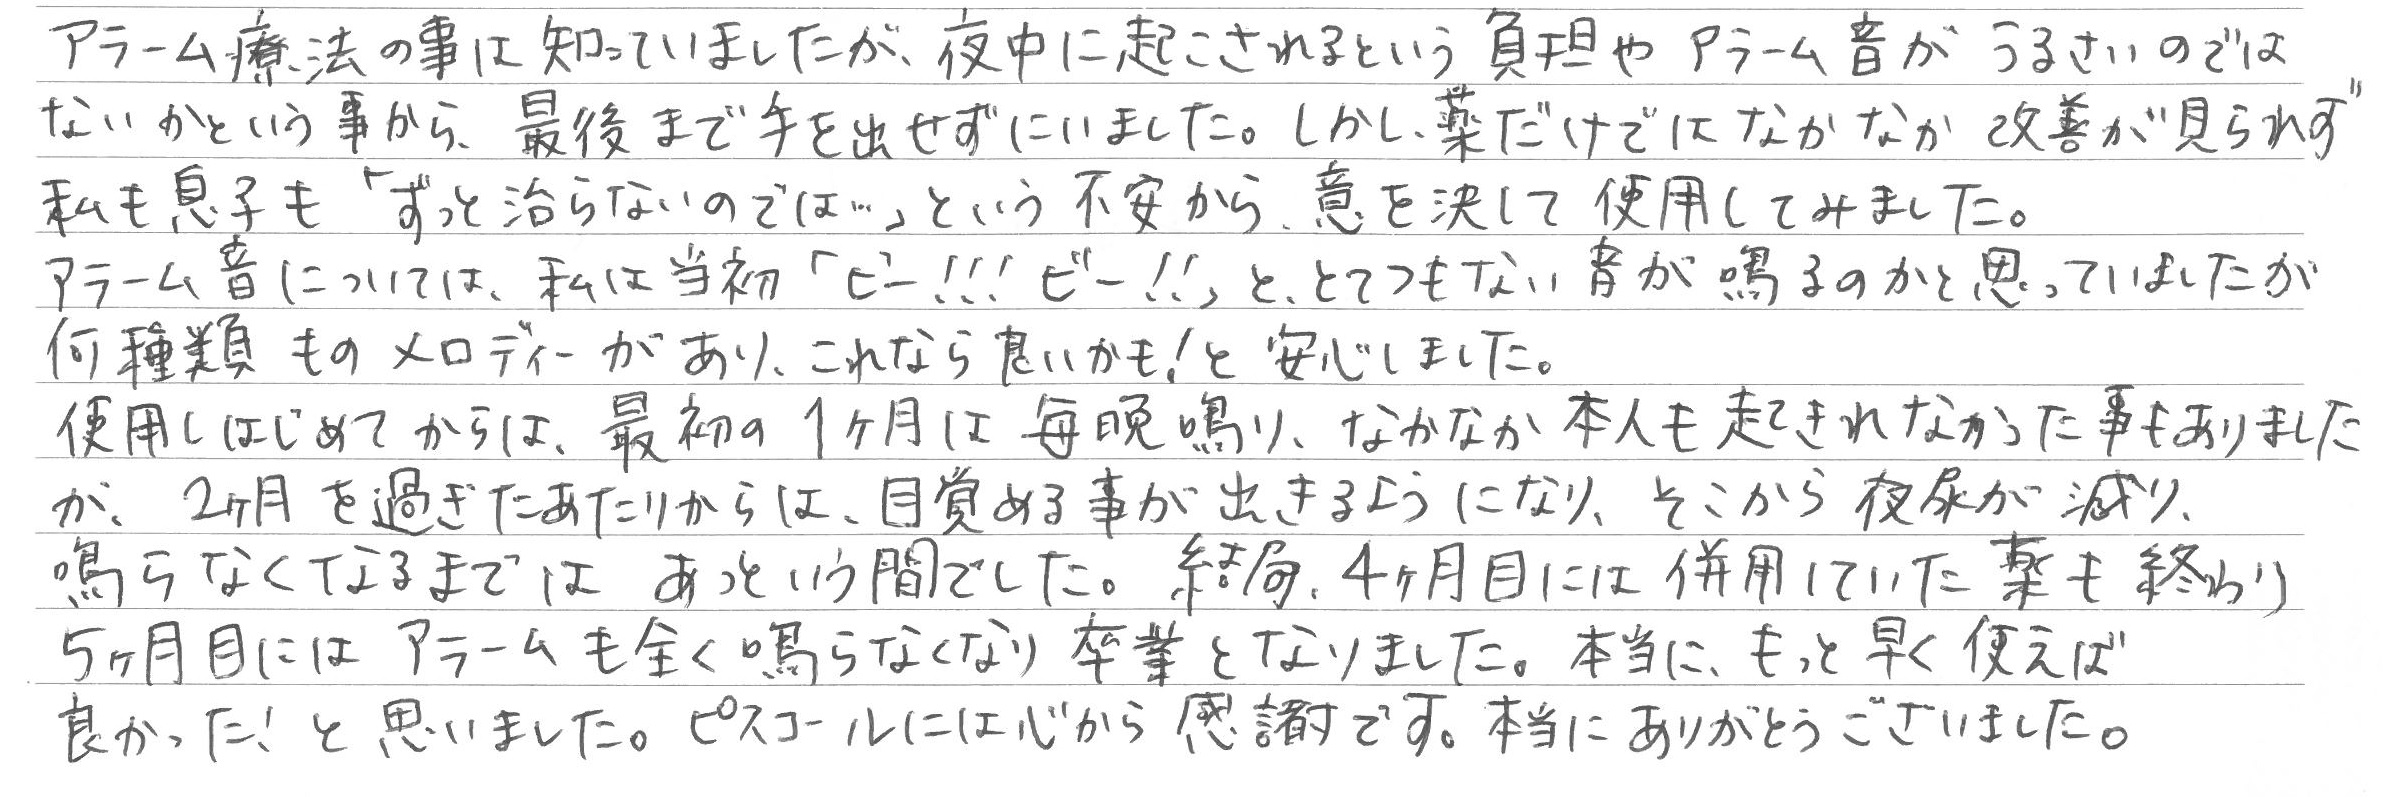 アラーム療法の事は知っていましたが、夜中に起こされるという負担やアラーム音がうるさいのでは
ないかという事から、最後まで手を出せずにいました。しかし、薬だけではなかなか改善が見られず
私も息子も「ずっと治らないのでは…」という不安から、意を決して使用してみました。
アラーム音については、私は当初「ビー!!!ビー!!」と、とてつもない音が鳴るのかと思っていましたが
何種類ものメロディーがあり、これなら良いかも!と安心しました。
使用しはじめてからは、最初の1ヶ月は毎晩鳴り、なかなか本人も起きれなかった事もありました
が、2ヶ月を過ぎたあたりからは、目覚める事が出きるようになり、そこから夜尿が減り、
鳴らなくなるまではあっという間でした。結局、4ヶ月目には併用していた薬も終わり
5ヶ月目にはアラームも全く鳴らなくなり卒業となりました。本当に、もっと早く使えば
良かった!と思いました。ピスコールには心から感謝です。本当にありがとうございました。